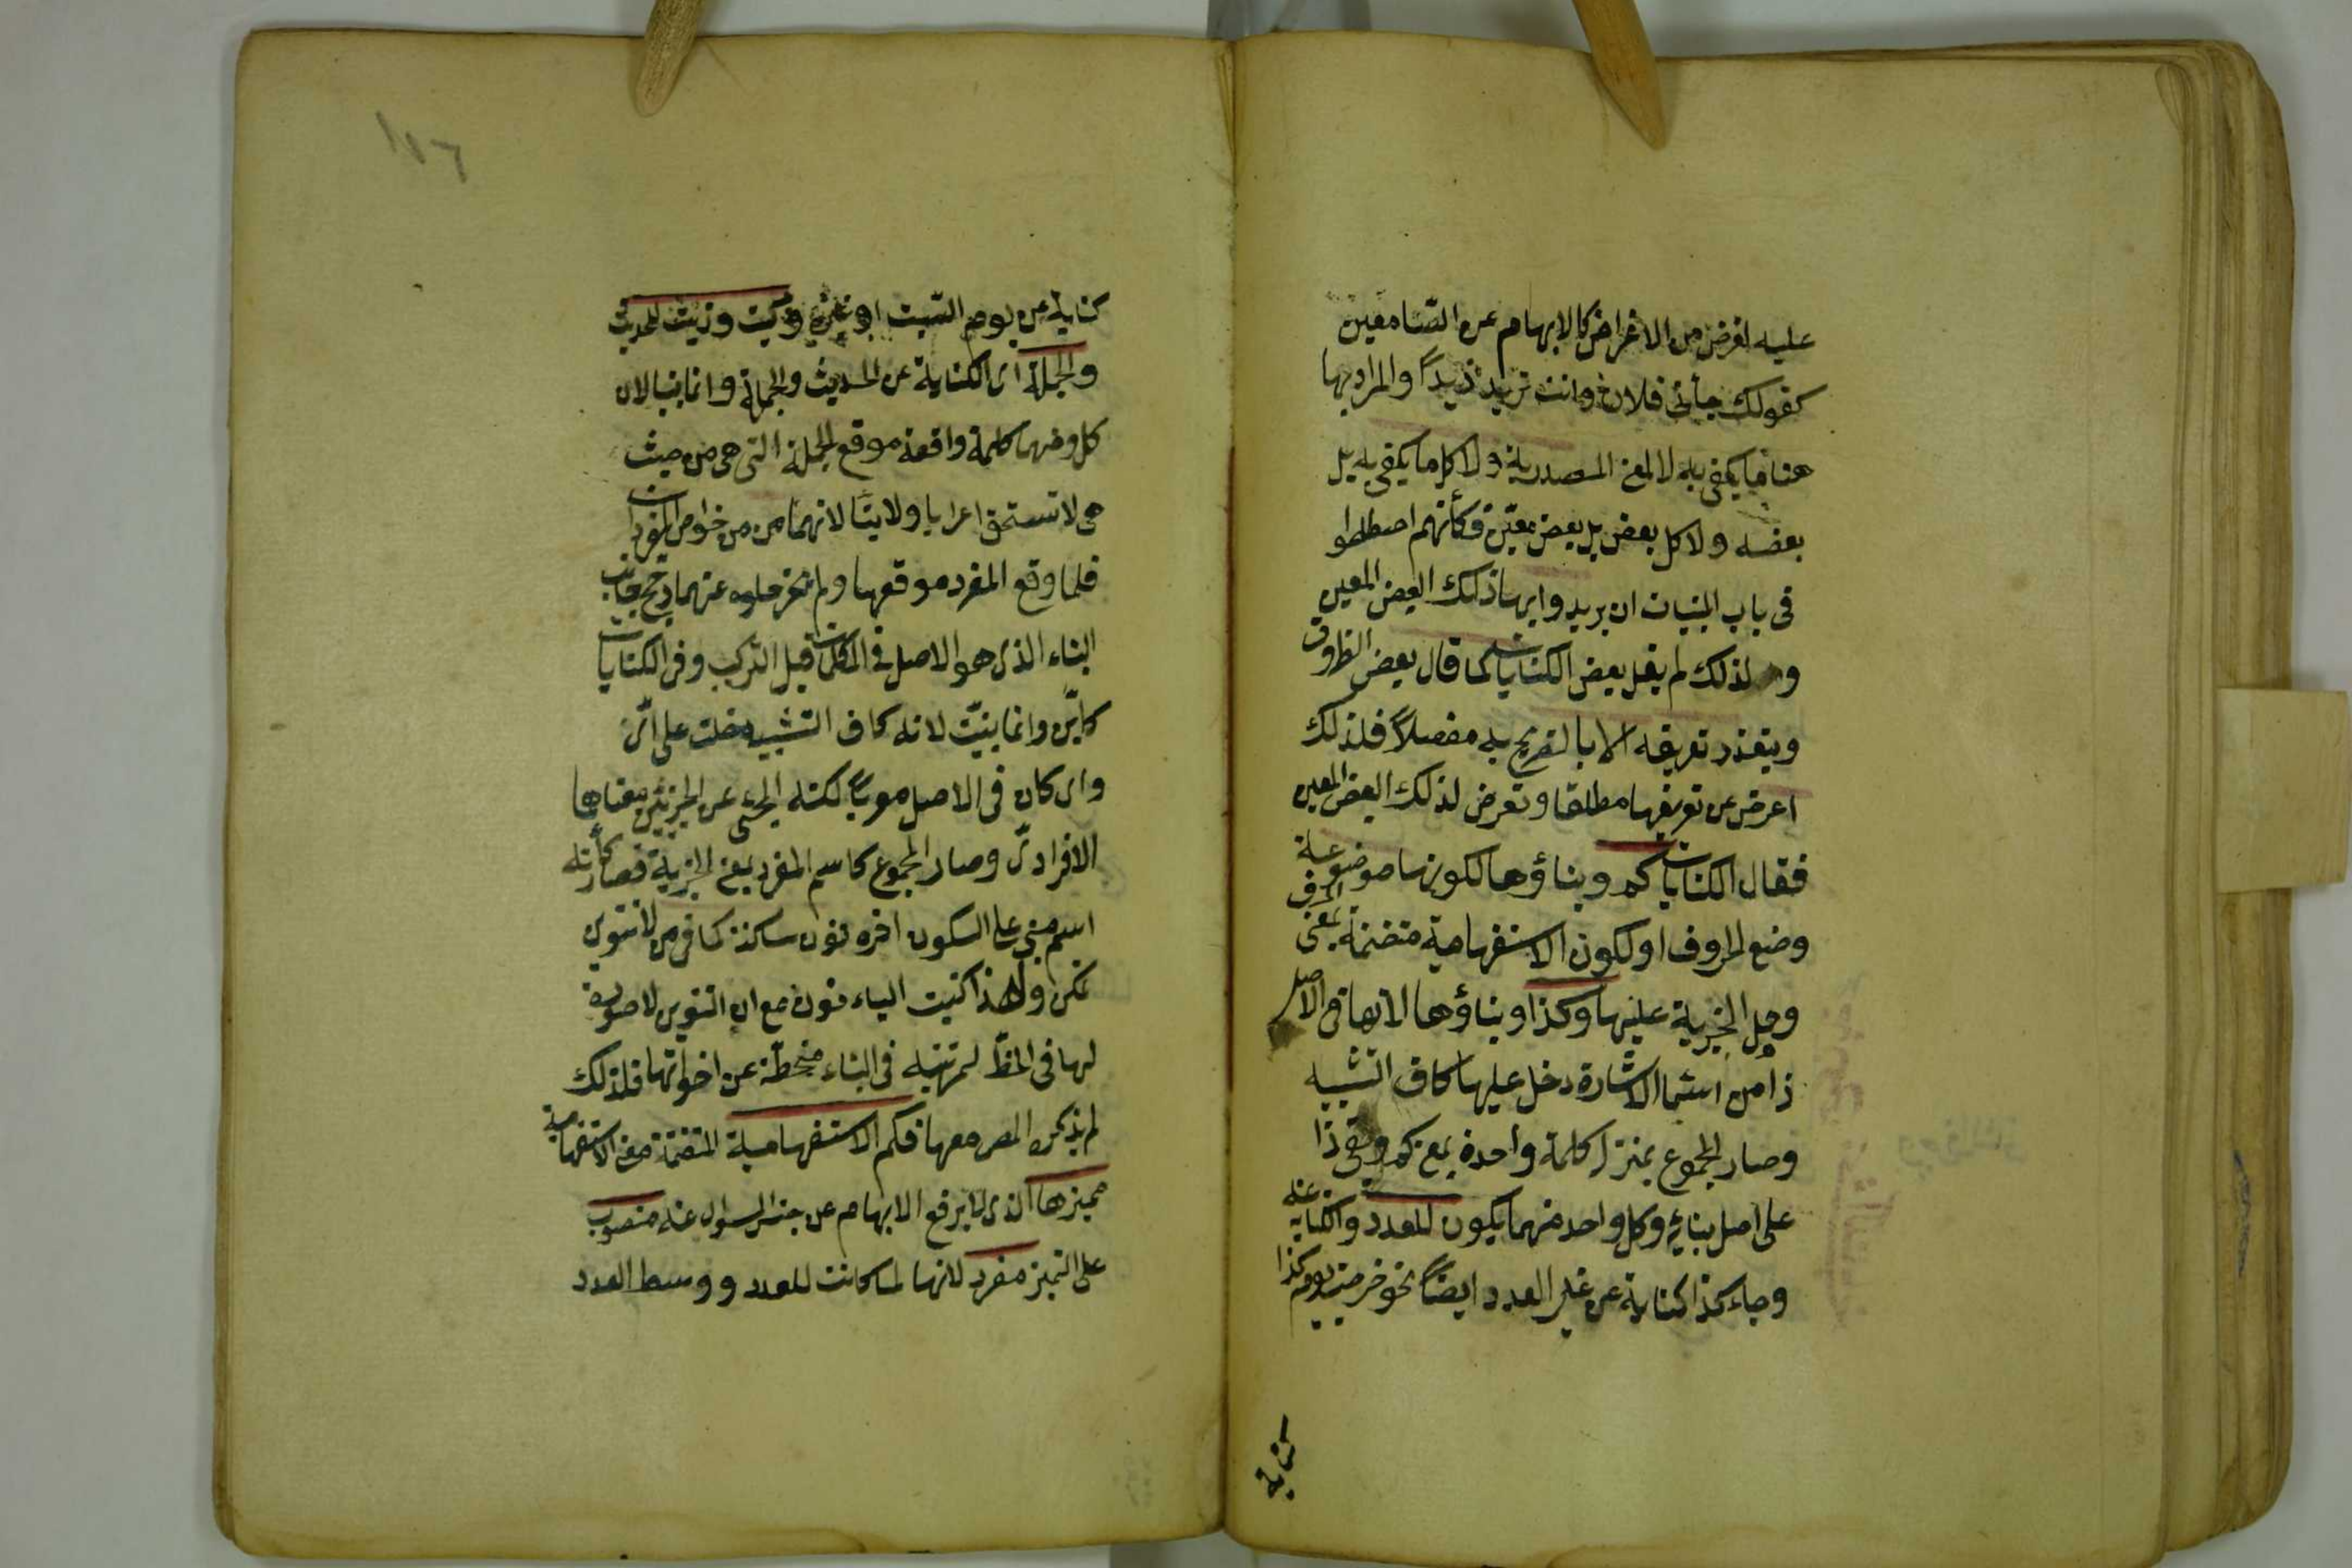 عليه لغرض من الاغراض كالابهام عن السامعين
كقولك جأنى فلان وانت تريد زيداً والمراد بها
هنا ما يكنى به لا المعنى المصدرية ولا كل ما يكنى به بل
بعضه ولا كل بعض بل بعض معيّن فكأنهم اصطلحوا
فى باب المبنيات ان يريدوا بها ذلك البعض المعين
ولذلك لم يقل بعض الكنايات كما قال بعض الظروف
ويتعذر تعريفه الا بالتصريح به مفصلاً فلذلك
اعرض عن تعريفها مطلقا وتعرض لذلك البعض المعين
فقال الكنايات كم وبناؤها لكونها موضوعة
وضع الحروف او لكون الاستفهامية متضمنة بمعنى الحرف
وحمل الخبرية عليها وكذا وبناؤها لانها فى الاصل
ذا من اسماء الاشارة دخل عليها كاف التشبيه
وصار المجموع بمنزلة كلمة واحدة بمعنى كم وبقى ذا
على اصل بنائه وكل واحد منهما يكون للعدد والكناية عنه
وجاء كذا كناية عن غير العدد ايضاً نحو خرجت يوم كذا
كناية
١٧٦
كناية عن يوم السبت او غيره وكيت وذيت للحديث
والجملة اى الكناية عن الحديث والجملة وانما بنيا لان
كل منهما كلمة واقعة موقع الجملة التى هى من حيث
هى لا تستحق اعرابا ولا بنا لانهما من من خواص المفردات
فلما وقع المفرد موقعها ولم يجز خلوه عنهما رجح جانب
البناء الذى هو الاصل فى الكلمات قبل التركيب وفى الكنايات
كايّن وانما بنيت لانه كاف التشبيه دخلت على اىّ
واى كان فى الاصل معرباً لكنه انمحى عن الجزئين معناهما
الافرادىّ وصار المجموع كاسم المفرد بمعنى الخبرية فصار كأنه
اسم مبنى على السكون اخره نون ساكنة كما فى من لا تنوين
تمكن ولهذا كتبت الياء نون مع ان التنوين لا صورة
لها فى الخطّ لمرتبته فى البناء منحطّة عن اخواتها فلذلك
لم يذكره المصر معها فكم الاستفهامية المتضمنة معنى الاستفهامية
مميزها الذى لا يرفع الابهام عن جنس السؤال عنه منصوب
على التميز مفرد لانها لما كانت للعدد ووسط العدد